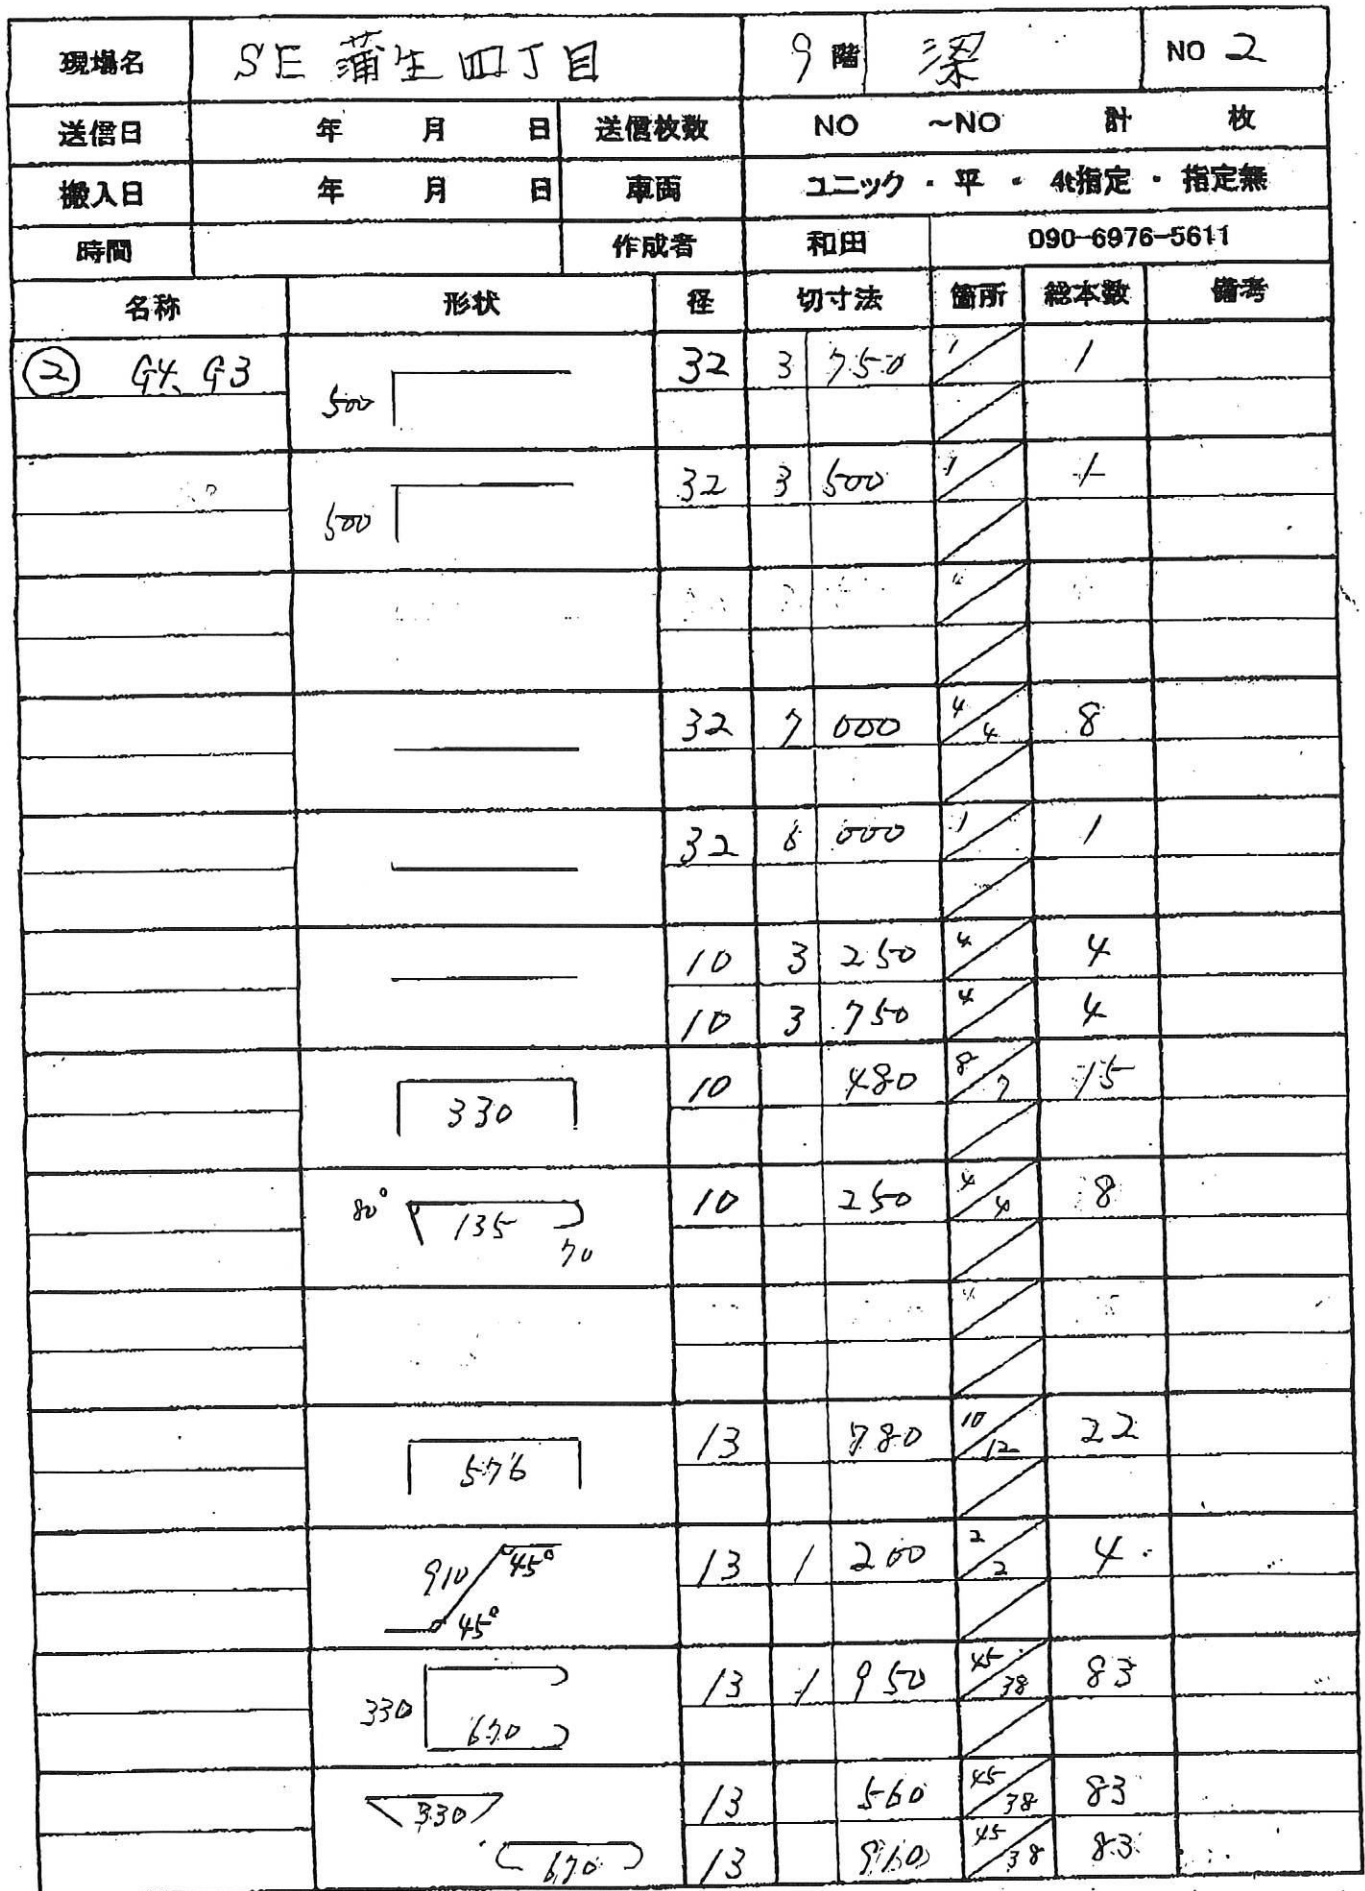 現場名 SE 蒲生四丁目 9 階 梁 NO 2
送信日 年 月 日 送信枚数 NO ~NO 計 枚
搬入日 年 月 日 車両 ユニック・平・4t指定・指定無
時間 作成者 和田 090-6976-5611
名称 形状 径 切寸法 箇所 総本数 備考
② G4、G3 500 32 3 750 1 1
500 32 3 500 1 1
32 7 000 4/4 8
32 6 000 1 1
10 3 250 4 4
10 3 750 4 4
330 10 480 8/7 15
80° 135 70 10 250 4/4 8
576 13 780 10/12 22
910 45° 45° 13 1 200 2/2 4
330 670 13 1 950 45/38 83
330 13 560 45/38 83
670 13 910 45/38 83